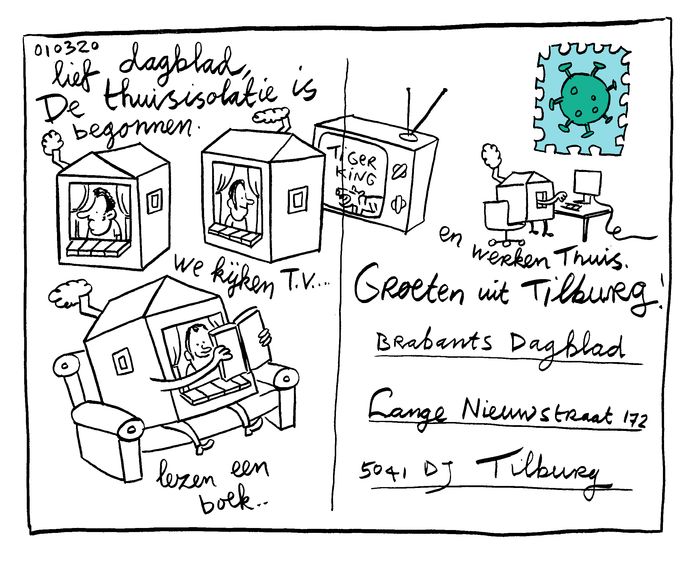 010320
lief dagblad,
De thuisisolatie is
begonnen.
TIGER
KING
we kijken T.V...
lezen een
boek..
en werken Thuis.
Groeten uit Tilburg!
Brabants Dagblad
Lange Nieuwstraat 172
5041 DJ Tilburg